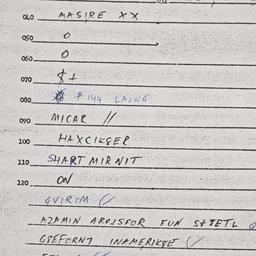 040 MASIRE XX
050 O
060 O
070 $ +
080 P 144 LAJNG
090 MICAR //
100 HAXCIKGER
110 SHART MIRNIT
120 ON
GVIRIM
AZAMIN AREJSFOR FUN
GSEFORNT INAMERIKGET